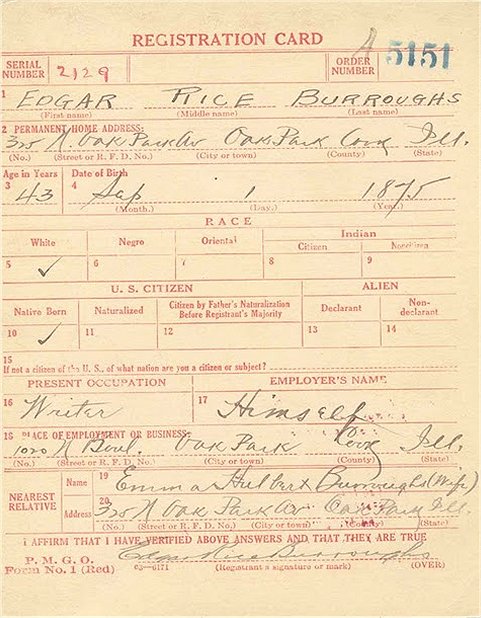 REGISTRATION CARD
SERIAL NUMBER 2129 ORDER NUMBER A 5151
1 EDGAR RICE BURROUGHS
(First name) (Middle name) (Last name)
2 PERMANENT HOME ADDRESS:
325 N. Oak Park Av Oak Park Cook Ill.
(No.) (Street or R. F. D. No.) (City or town) (County) (State)
Age in Years Date of Birth
3 43 4 Sep 1 1875
(Month.) (Day.) (Year.)
RACE
White Negro Oriental Indian
Citizen Noncitizen
5 ✓ 6 7 8 9
U. S. CITIZEN ALIEN
Native Born Naturalized Citizen by Father's Naturalization Before Registrant's Majority Declarant Non-declarant
10 ✓ 11 12 13 14
15
If not a citizen of the U. S., of what nation are you a citizen or subject?
PRESENT OCCUPATION EMPLOYER'S NAME
16 Writer 17 Himself
18 PLACE OF EMPLOYMENT OR BUSINESS:
1020 N Boul. Oak Park Cook Ill.
(No.) (Street or R. F. D. No.) (City or town) (County) (State)
NEAREST RELATIVE
Name 19 Emma Hulbert Burroughs (Wife)
Address 20 325 N Oak Park Av Oak Park Ill.
(No.) (Street or R. F. D. No.) (City or town) (County) (State)
I AFFIRM THAT I HAVE VERIFIED ABOVE ANSWERS AND THAT THEY ARE TRUE
P. M. G. O.
Form No. 1 (Red) 03—6171 Edgar Rice Burroughs
(Registrant's signature or mark) (OVER)